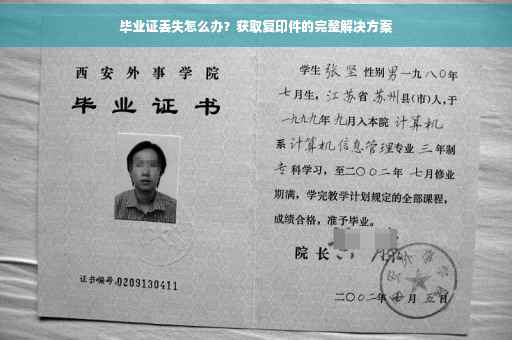 毕业证丢失怎么办？获取复印件的完整解决方案
西安外事学院
毕业证书
证书编号:0209130411
学生张坚性别男一九八〇年
七月生，江苏省苏州县(市)人,于
一九九九年九月入本院计算机
系计算机信息管理专业三年制
专科学习，至二〇〇二年七月修业
期满，学完教学计划规定的全部课程，
成绩合格，准予毕业。
院长
二〇〇二年七月五日